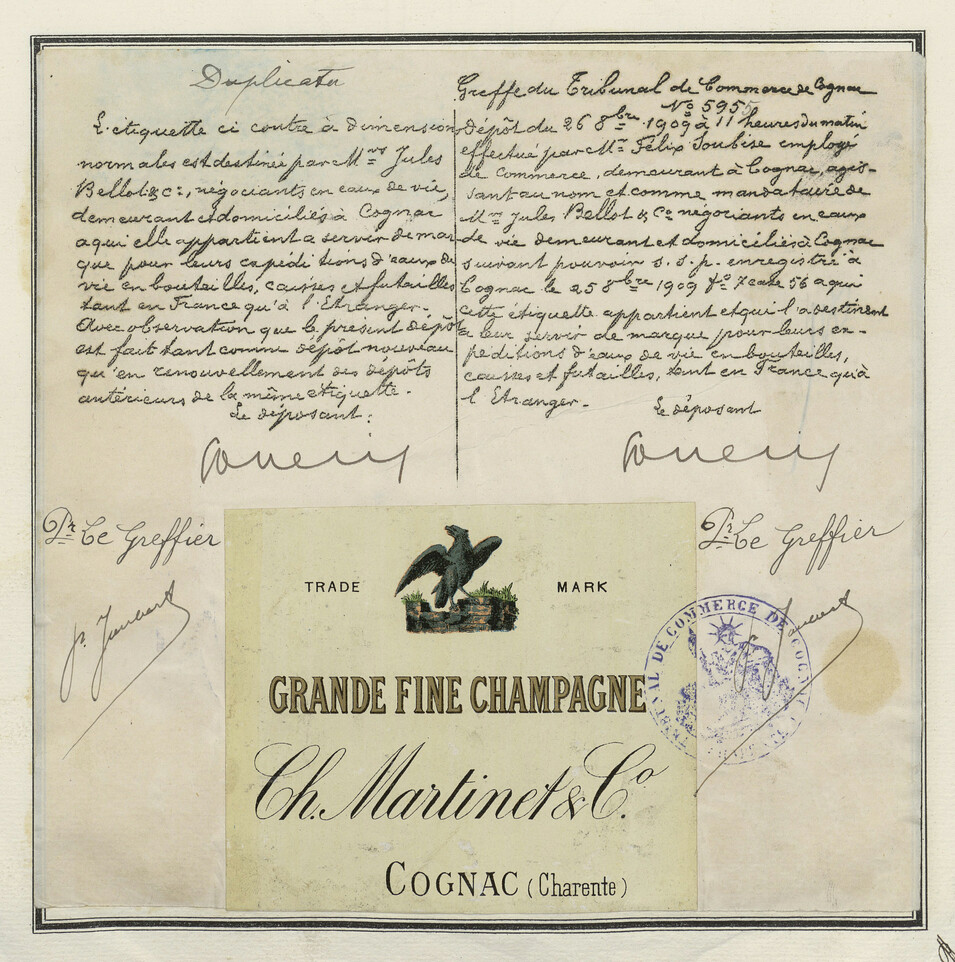 Duplicata
L'étiquette ci contre à dimensions
normales est destinée par Mrs Jules
Bellot & Cie, négociants en eaux de vie,
demeurant et domiciliés à Cognac
a qui elle appartient a servir de mar-
que pour leurs expéditions d'eaux de
vie en bouteilles, caisses et futailles
tant en France qu'à l'Etranger.
Avec observation que le présent dépôt
est fait tant comme dépôt nouveau
qu'en renouvellement des dépôts
antérieurs de la même étiquette.
Le déposant:
Greffe du Tribunal de Commerce de Cognac
No 5955
Dépôt du 26 8bre 1909 à 11 heures du matin
effectué par Mr Félix Soubise employé
de Commerce, demeurant à Cognac, agis-
sant au nom et comme mandataire de
Mrs Jules Bellot & Co négociants en eaux
de vie demeurant et domiciliés à Cognac
suivant pouvoir s.s.p. enregistré à
Cognac le 25 8bre 1909 fo 7 case 56 a qui
cette étiquette appartient et qui l'a destinent
a leur servir de marque pour leurs ex-
péditions d'eaux de vie en bouteilles,
caisses et futailles, tant en France qu'à
l'Etranger.
Le déposant
Pr Le Greffier
Pr Le Greffier
TRADE MARK
GRANDE FINE CHAMPAGNE
Ch. Martinet & Co.
COGNAC (Charente)
TRIBUNAL DE COMMERCE DE COGNAC